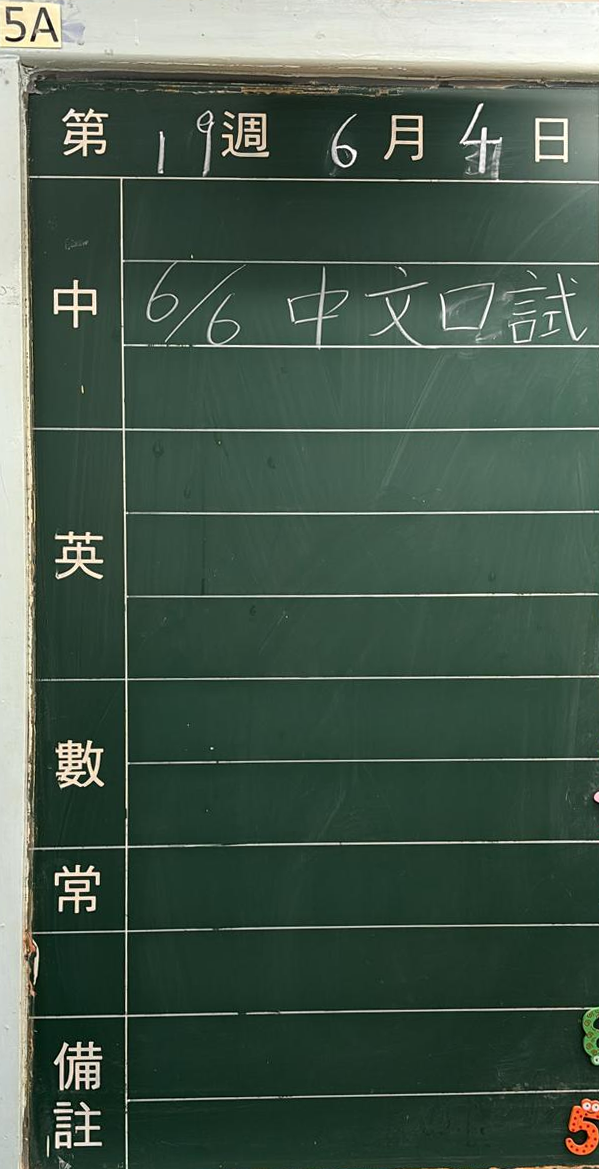 5A
第 19 週 6 月 4 日
中
6/6 中文口試
英
數
常
備
註
8
5